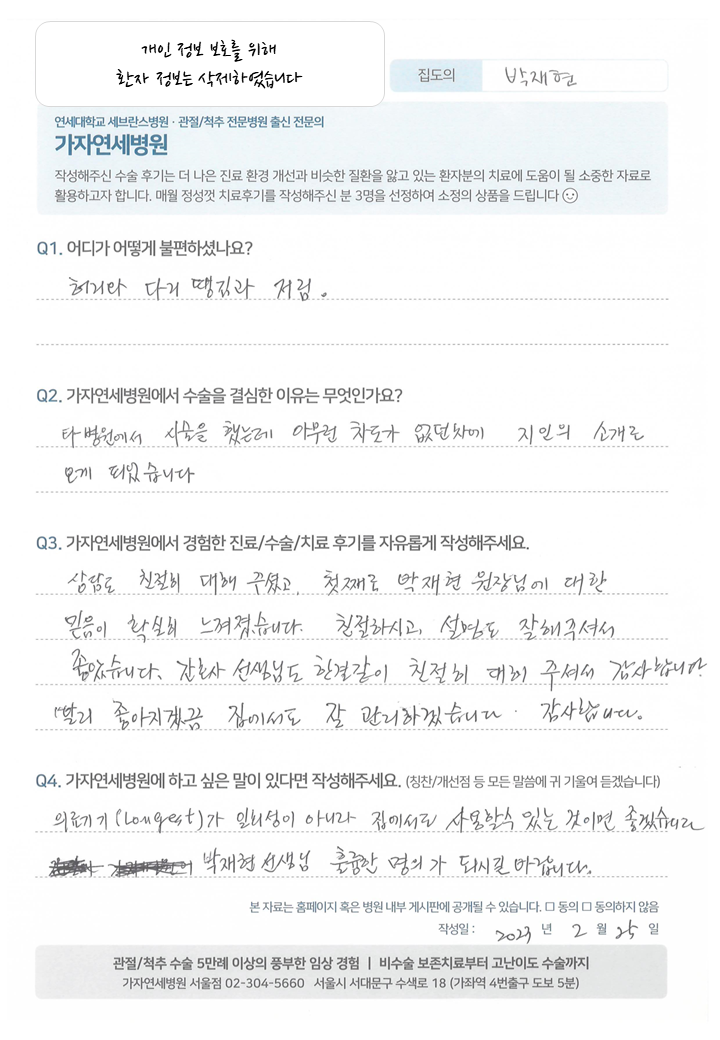 개인 정보 보호를 위해
환자 정보는 삭제하였습니다
집도의 박재현
연세대학교 세브란스병원 · 관절/척추 전문병원 출신 전문의
가자연세병원
작성해주신 수술 후기는 더 나은 진료 환경 개선과 비슷한 질환을 앓고 있는 환자분의 치료에 도움이 될 소중한 자료로
활용하고자 합니다. 매월 정성껏 치료후기를 작성해주신 분 3명을 선정하여 소정의 상품을 드립니다
Q1. 어디가 어떻게 불편하셨나요?
허리와 다리 땡김과 저림.
Q2. 가자연세병원에서 수술을 결심한 이유는 무엇인가요?
타병원에서 시술을 했는데 아무런 차도가 없던차에 지인의 소개로
오게 되었습니다
Q3. 가자연세병원에서 경험한 진료/수술/치료 후기를 자유롭게 작성해주세요.
상담도 친절히 대해 주셨고, 첫째로 박재현 원장님에 대한
믿음이 확실히 느껴졌습니다. 친절하시고, 설명도 잘해주셔서
좋았습니다. 간호사 선생님도 한결같이 친절히 대해 주셔서 감사합니다.
빨리 좋아지겠끔 집에서도 잘 관리하겠습니다. 감사합니다.
Q4. 가자연세병원에 하고 싶은 말이 있다면 작성해주세요. (칭찬/개선점 등 모든 말씀에 귀 기울여 듣겠습니다)
의료기기(Longest)가 일회성이 아니라 집에서도 사용할수 있는 것이면 좋겠습니다
박재현 선생님 훌륭한 명의가 되시길 바랍니다.
본 자료는 홈페이지 혹은 병원 내부 게시판에 공개될 수 있습니다. □ 동의 □ 동의하지 않음
작성일 : 2023 년 2 월 25 일
관절/척추 수술 5만례 이상의 풍부한 임상 경험 | 비수술 보존치료부터 고난이도 수술까지
가자연세병원 서울점 02-304-5660 서울시 서대문구 수색로 18 (가좌역 4번출구 도보 5분)